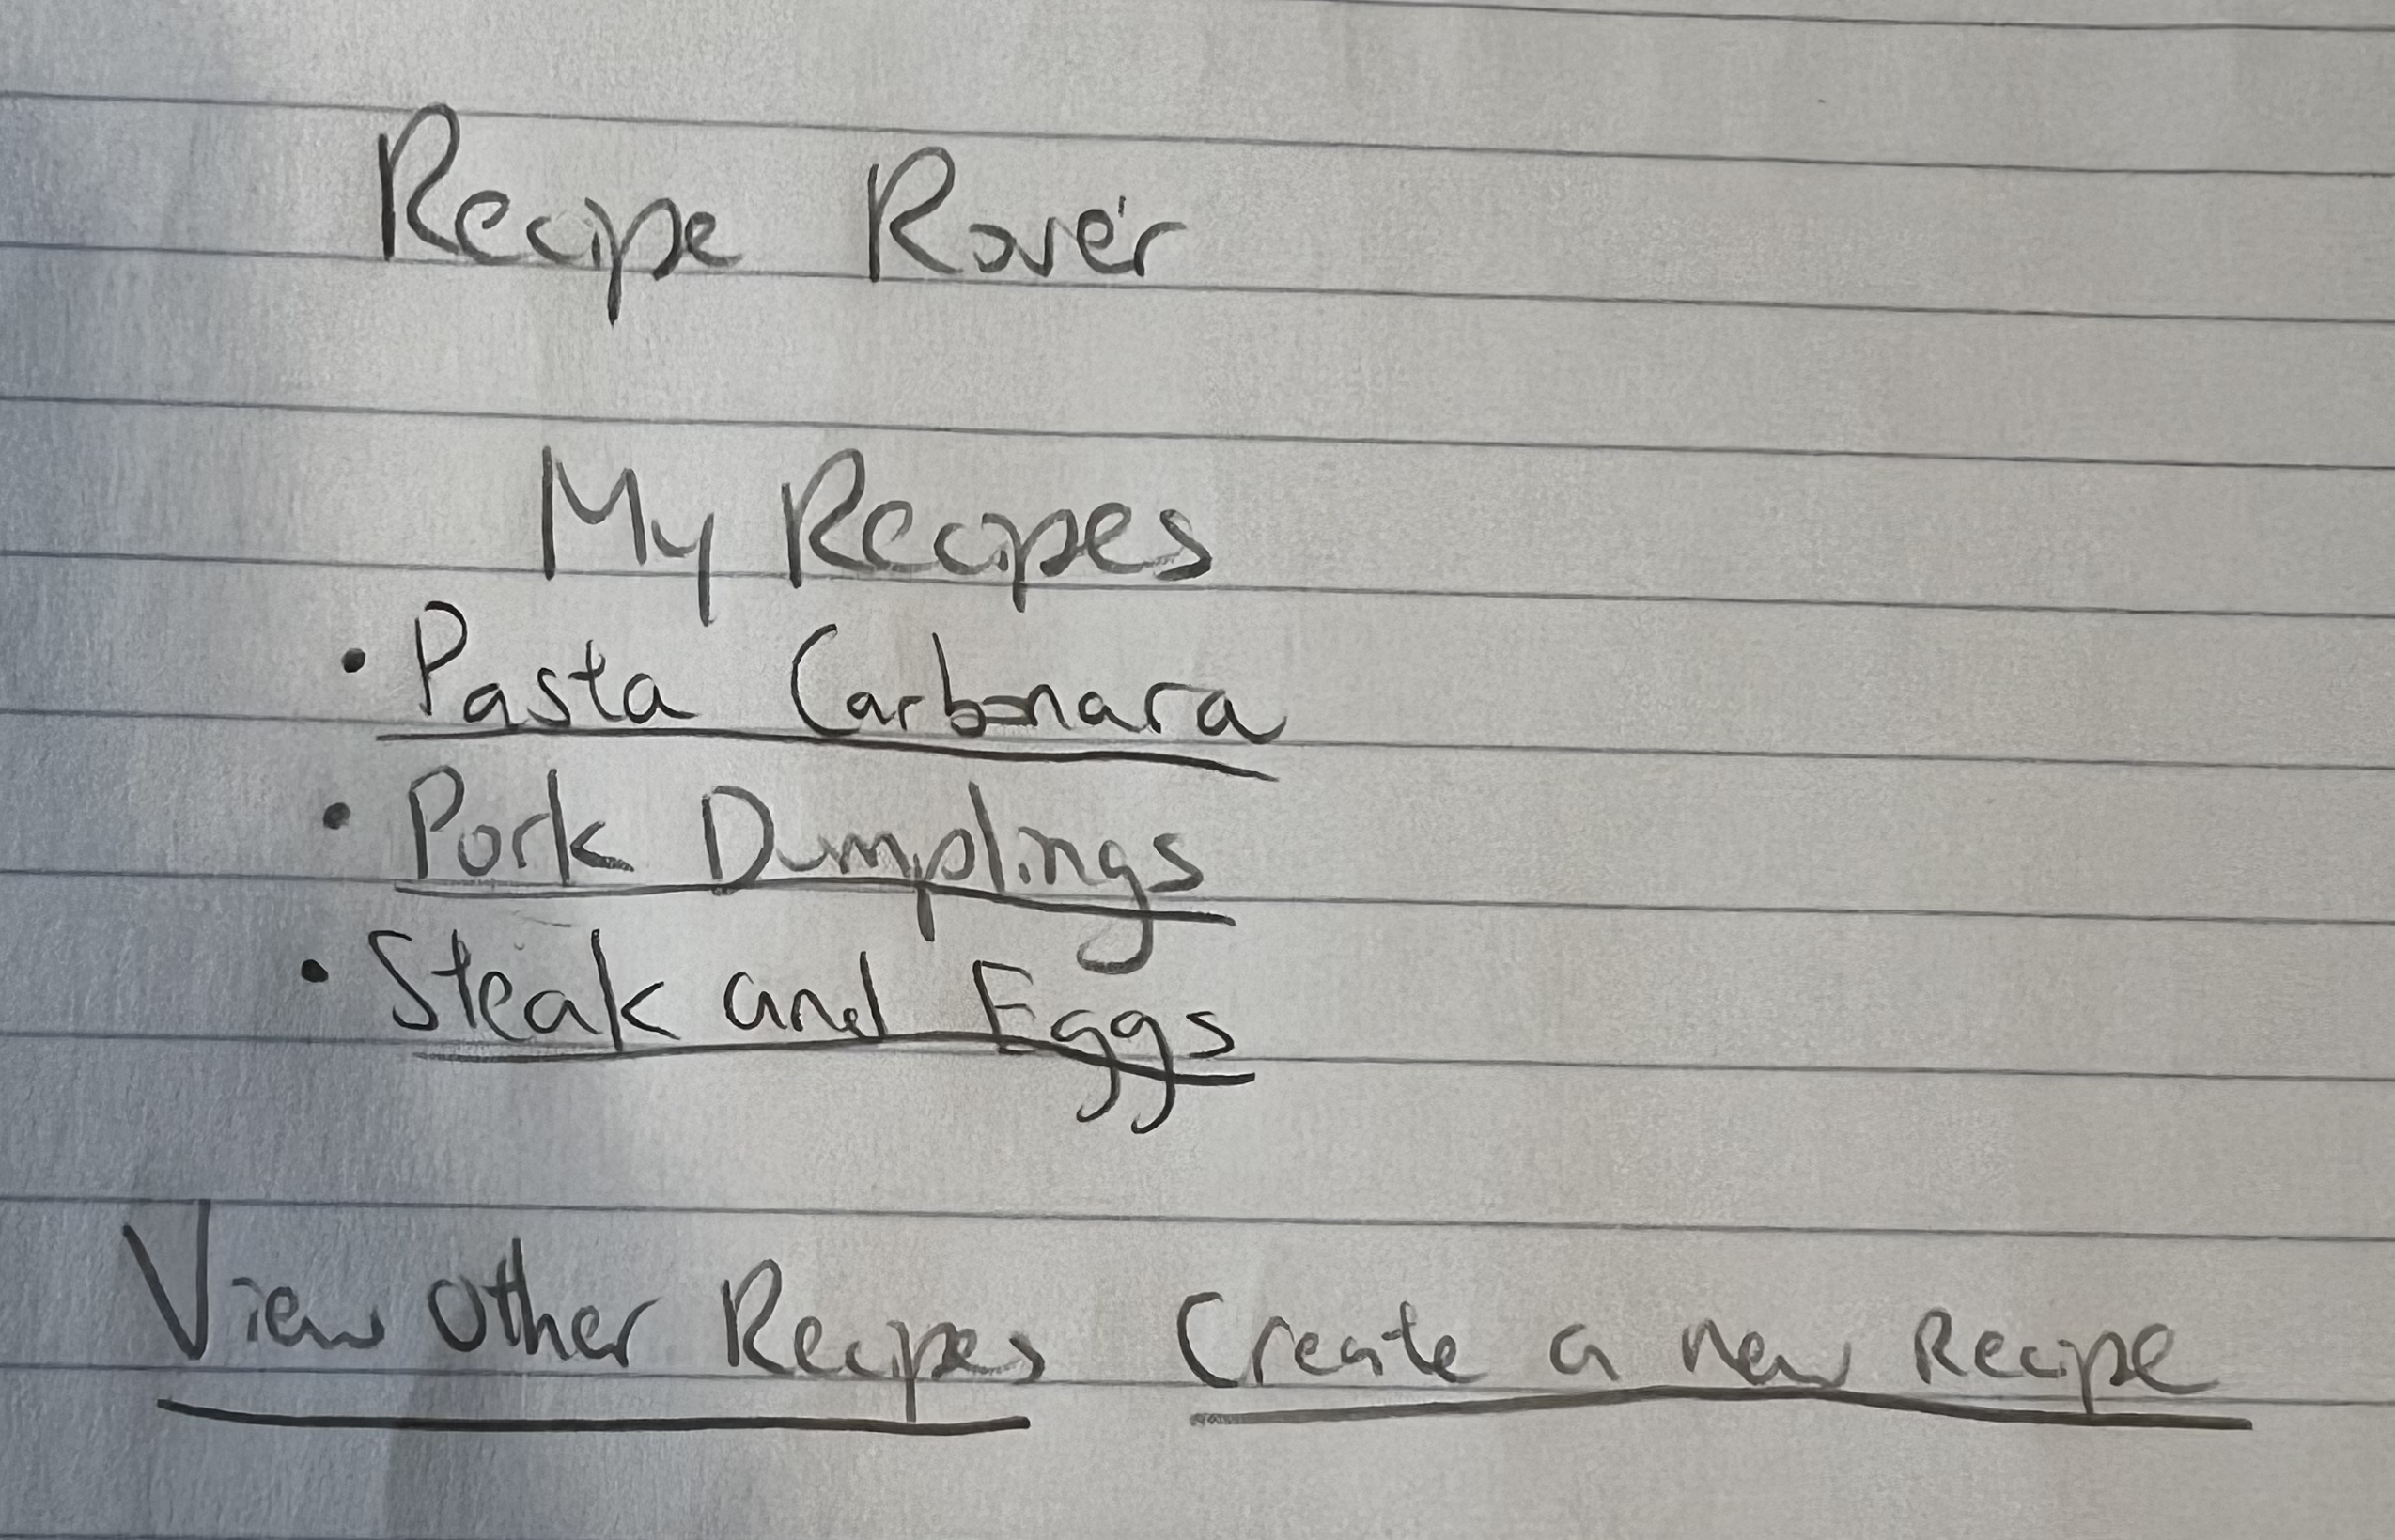 Recipe Rover
My Recipes
• Pasta Carbonara
• Pork Dumplings
• Steak and Eggs
View other Recipes Create a new Recipe